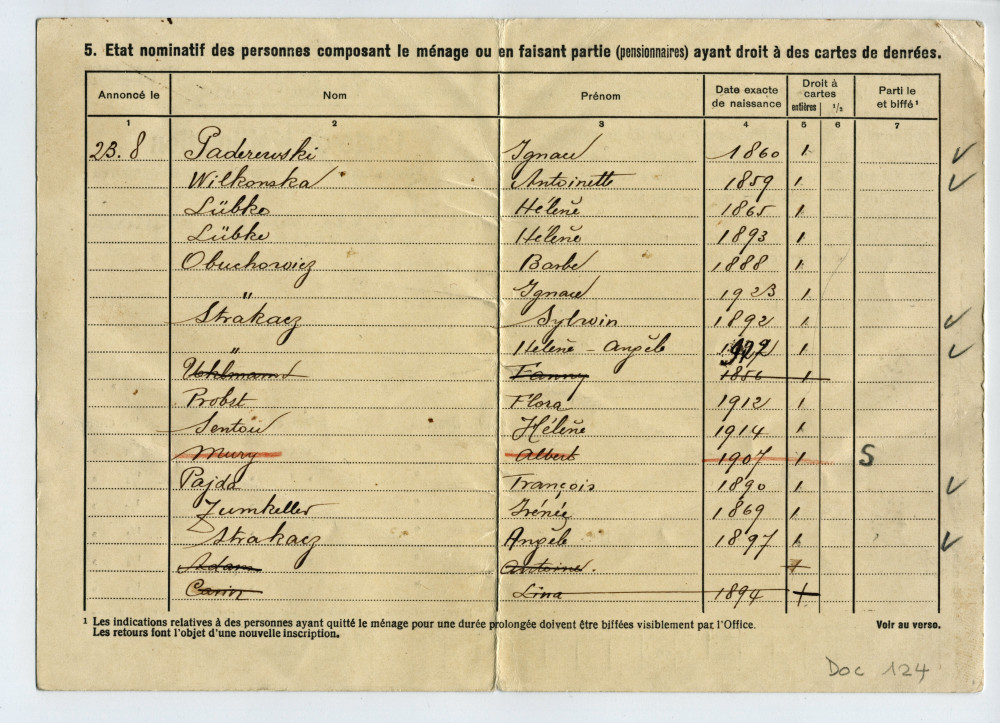 5. Etat nominatif des personnes composant le ménage ou en faisant partie (pensionnaires) ayant droit à des cartes de denrées.
Annoncé le Nom Prénom Date exacte de naissance Droit à cartes entières 1/2 Parti le et biffé ¹
1 2 3 4 5 6 7
23. 8 Paderewski Ignace 1860 1 ✓
Wilkonska Antoinette 1859 1 ✓
Lübke Hélène 1865 1
Lübke Hélène 1893 1
Obuchowicz Barbe 1888 1
" Ignace 1923 1
Strakacz Sylwin 1892 1 ✓
" Hélène - Angèle 1922 1 ✓
Uehlmann Fanny 1856 1
Probst Flora 1912 1
Sentou Hélène 1914 1
Mury Albert 1907 1 S
Pajda François 1890 1 ✓
Zumkeller Irénée 1869 1
Strakacz Angèle 1897 1 ✓
Adam Antoine. 1
Lina 1894 1
¹ Les indications relatives à des personnes ayant quitté le ménage pour une durée prolongée doivent être biffées visiblement par l'Office. Voir au verso.
Les retours font l'objet d'une nouvelle inscription.
Doc 124